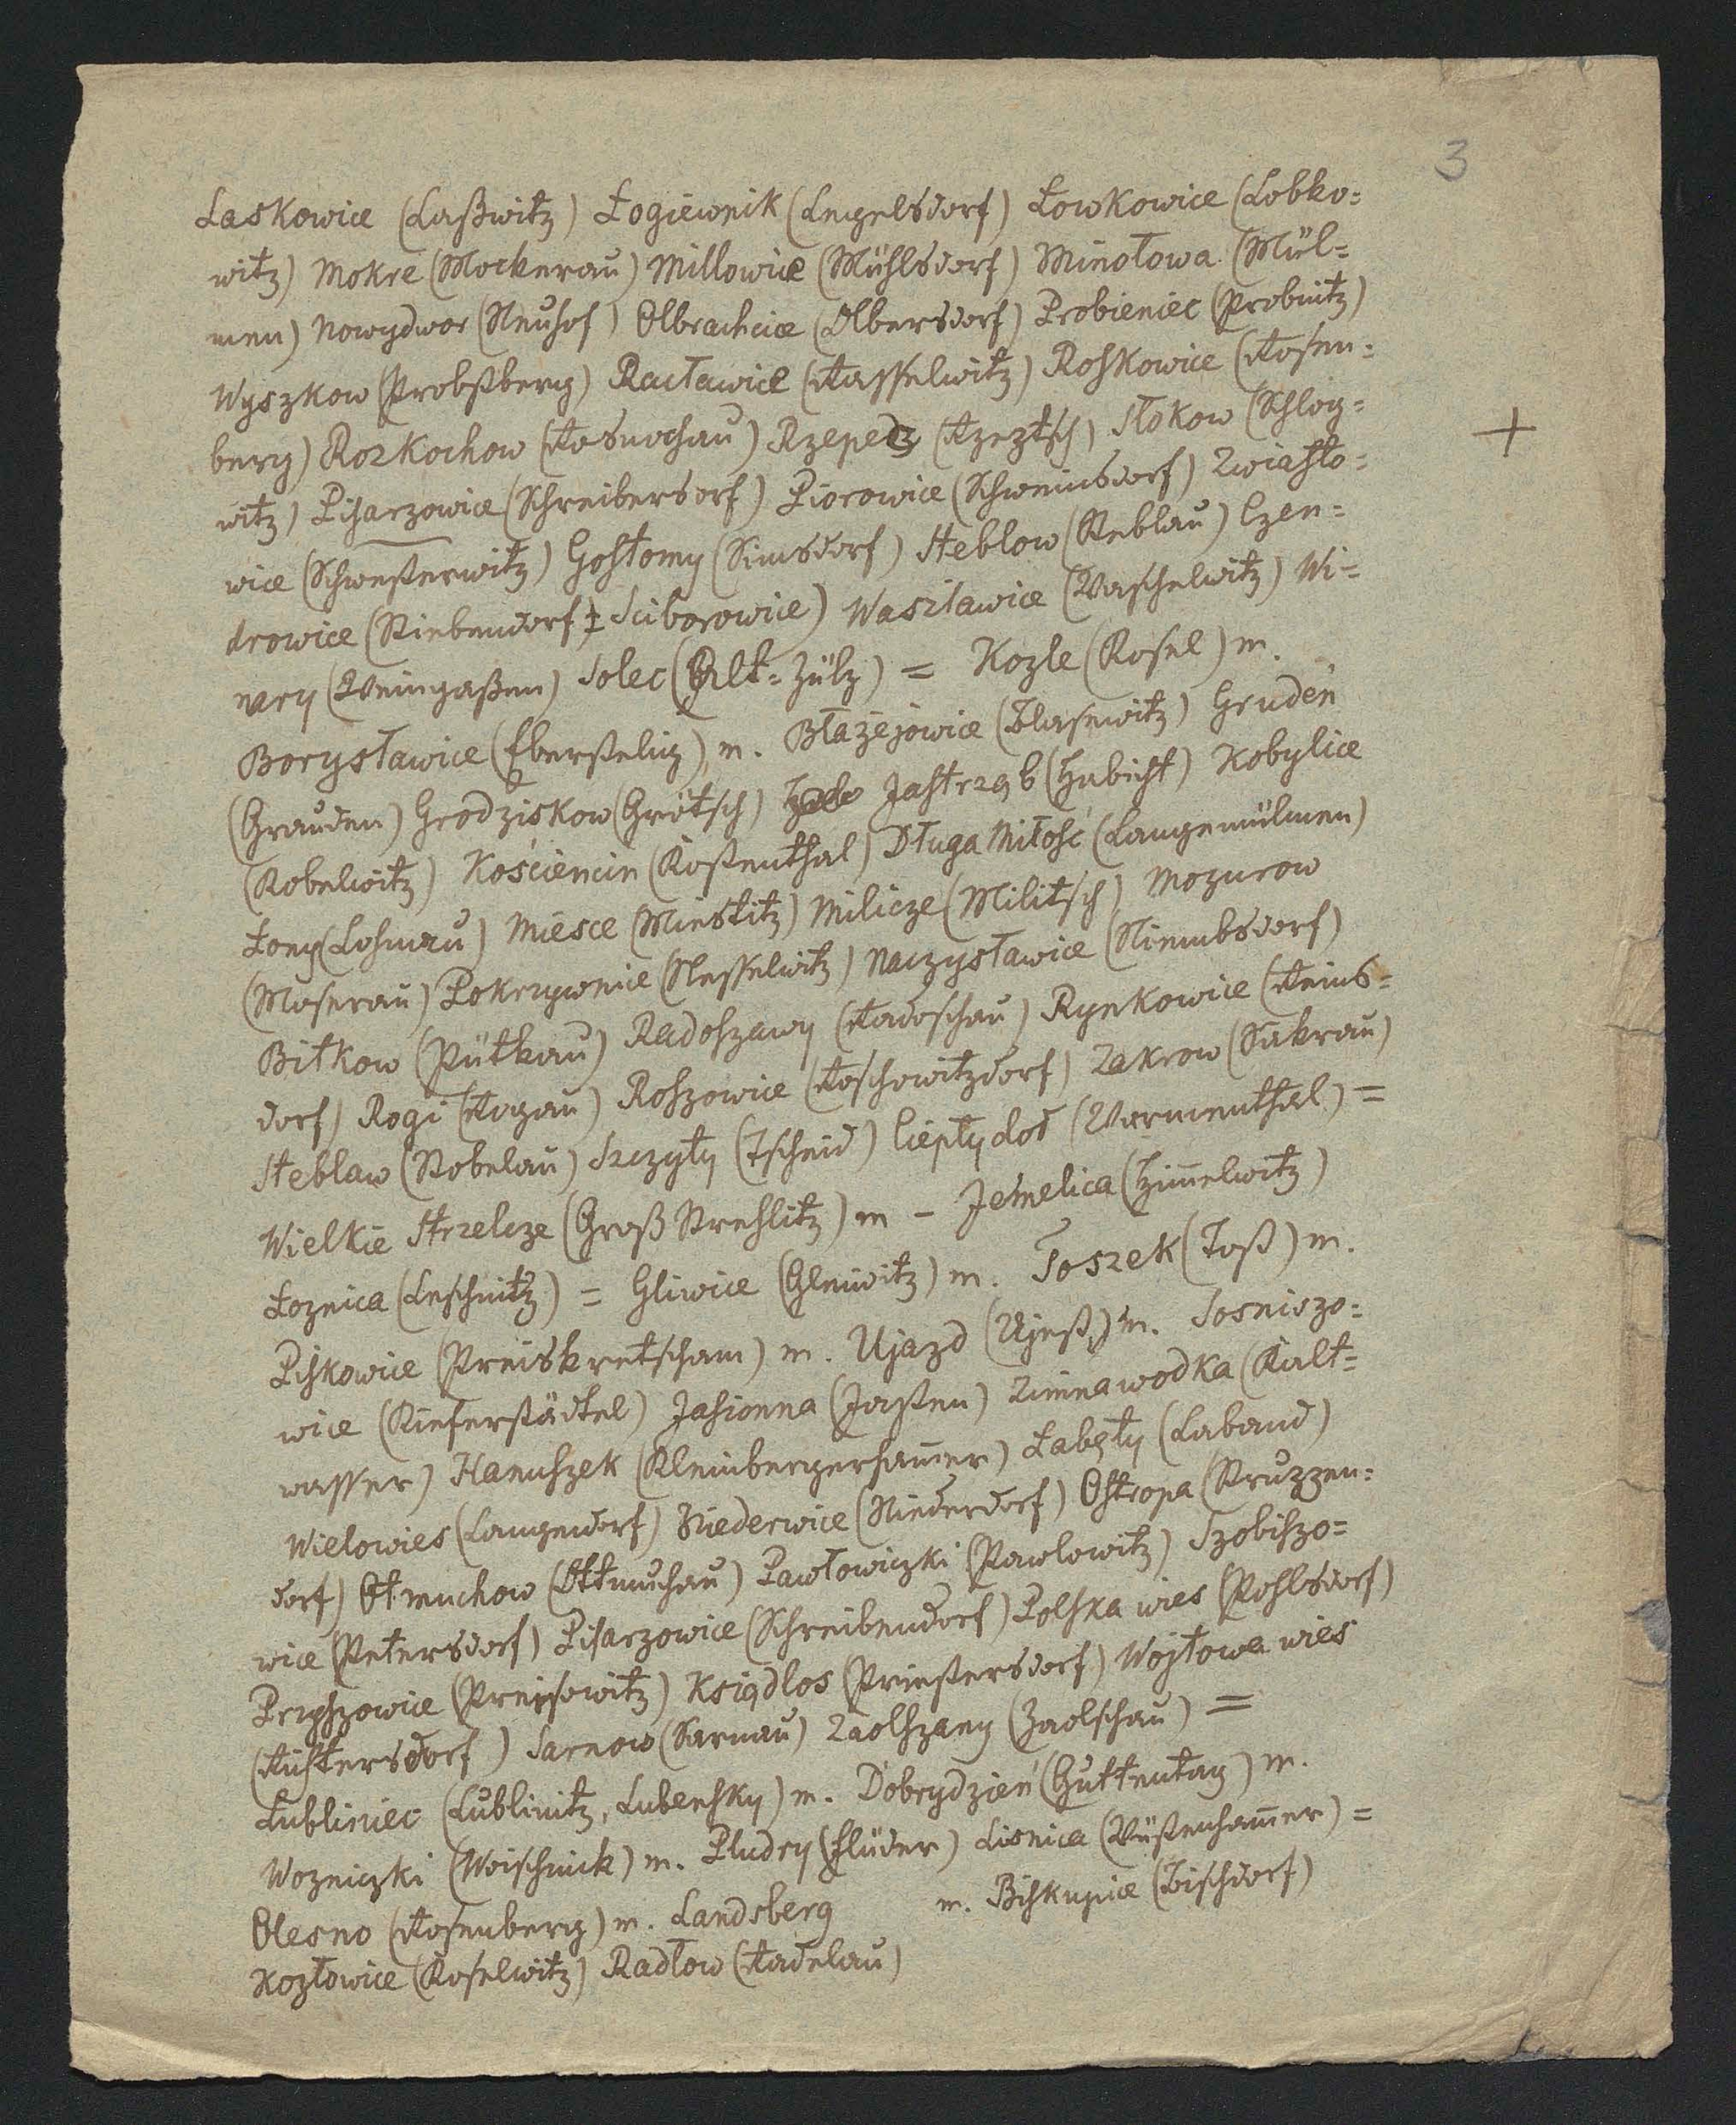 3
Laskowice (Laßwitz) Łogiewnik (Lengelsdorf) Łowkowice (Lobko=
witz) Mokre (Mockerau) Millowice (Mühlsdorf) Minołowa (Mül=
men) Nowydwor (Neuhof) Olbrachcice (Olbersdorf) Probieniec (Probnitz)
Wyszkow (Probstberg) Racławice (Rasselwitz) Roskowice (Rosen=
berg) Rozkochow (Rosnochau) Rzepedz (Rzeptsch) Słokow (Schlog=
witz) Pisarzowice (Schreibersdorf) Piorowice (Schweinsdorf) Zwiasto=
wice (Schwesterwitz) Gostomy (Simsdorf) Steblow (Steblau) Czen=
drowice (Stiebendorf ‡ Sciborowice) Waszławice (Waschelwitz) Wi=
nary (Weingaßen) Solec (Alt=Zülz) = Kozle (Kosel) m.
Borysławice (Eberstelig) m. Błażejowice (Blasewitz) Grudeń
(Grauden) Grodziskow (Grötsch) Jastrząb (Habicht) Kobylice
(Kobelwitz) Kościencin (Kostenthal) Długa Miłość (Langemülmen)
Łony (Lohnau) Miesce (Miestitz) Milicze (Militsch) Mozurow
(Moserau) Pokrzywnice (Nesselwitz) Naczysławice (Niembsdorf)
Bitkow (Pütkau) Radoszawy (Radoschau) Rynkowice (Reins=
dorf) Rogi (Rogau) Roszowice (Roschowitzdorf) Zakrow (Sakrau)
Steblaw (Stobelau) Szczyty (Tscheid) Ciepłydoł (Warmenthal) =
Wielkie Strzelcze (Groß Strehlitz) m - Jemelica (Himmelwitz)
Łoznica (Leschnitz) = Gliwice (Gleiwitz) m. Toszek (Tost) m.
Piskowice (Preiskretscham) m. Ujazd (Ujest) m. Sosniszo=
wice (Kieferstädtel) Jasionna (Jasten) Zimnawodka (Kalt=
wasser) Hanuszek (Kleinbergerhammer) Łabęty (Laband)
Wielowies (Langendorf) Niederwice (Niederdorf) Ostropa (Struzzen=
dorf) Otmuchow (Ottmuchau) Pawłowiczki (Pawlowitz) Szobiszo=
wice (Petersdorf) Pisarzowice (Schreibendorf) Polska wies (Pohlsdorf)
Przyszowice (Preisowitz) Ksiądlos (Priestersdorf) Wojtowa wieś
(Richtersdorf) Sarnow (Sarnau) Zaolszany (Zaolschau) =
Lubliniec (Lublinitz, Lubensky) m. Dobrydzień (Guttentag) m.
Wozniczki (Woischnick) m. Pludry (Flüder) Lisnica (Wüstenhammer) =
Olesno (Rosenberg) m. Landsberg m. Biskupice (Bischdorf)
Kozłowice (Koselwitz) Radłow (Radelau)